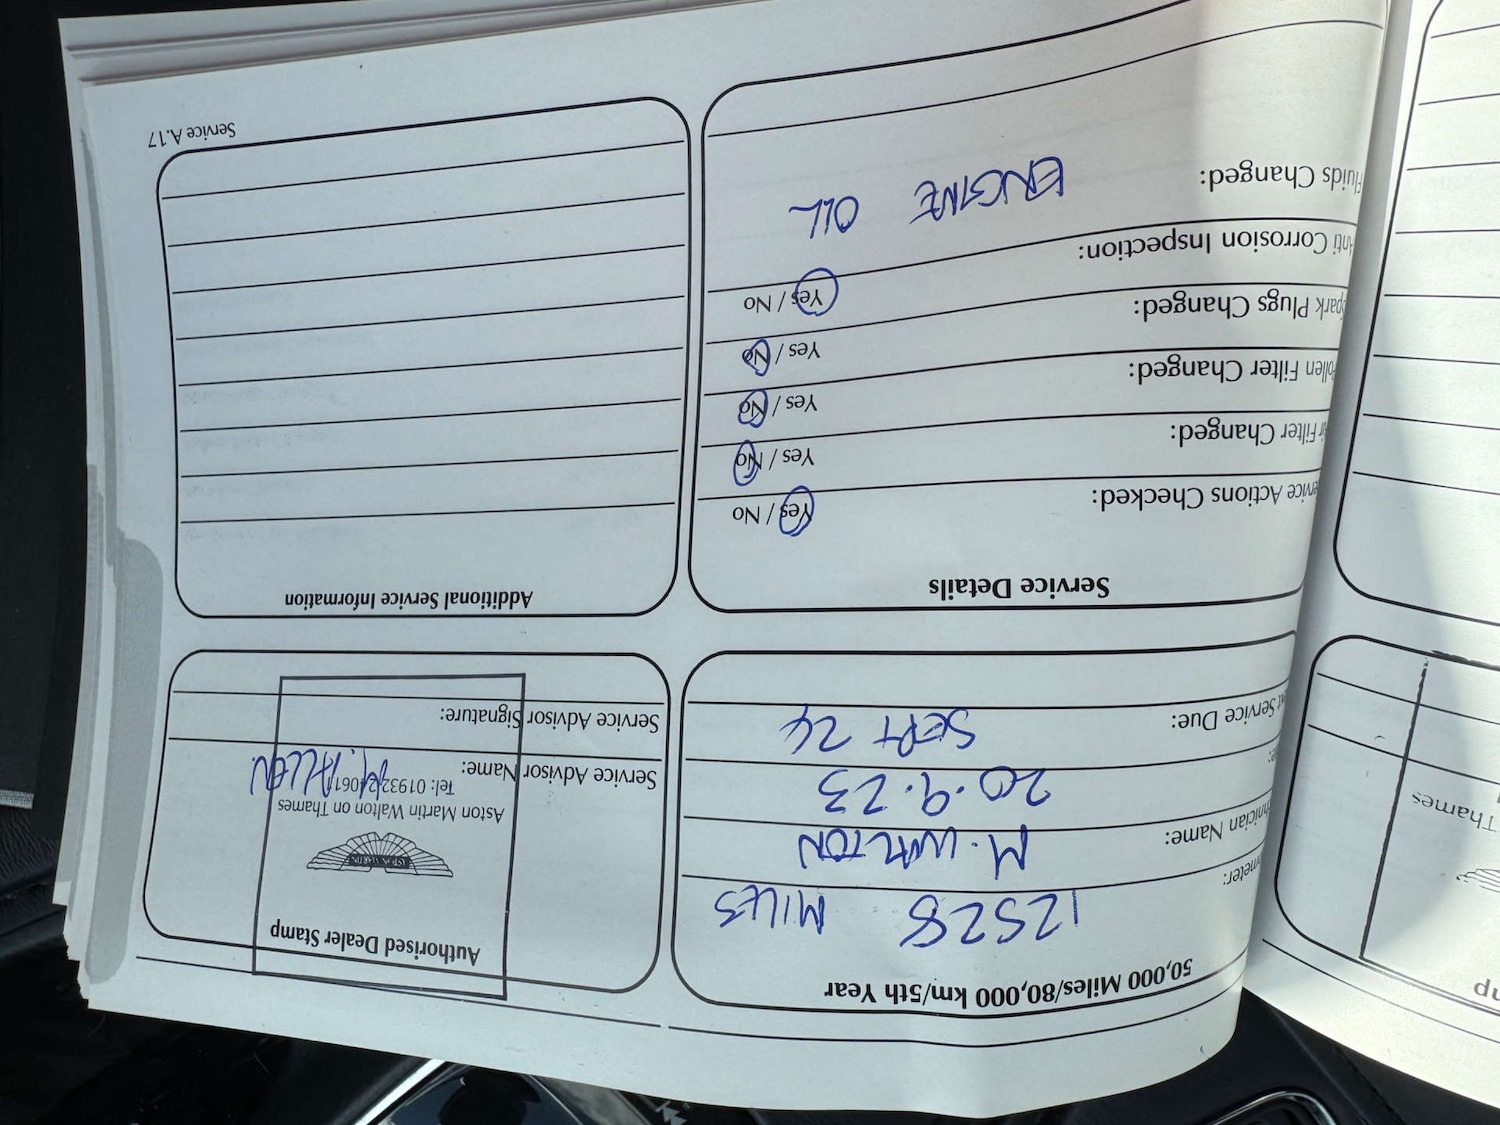 50,000 Miles/80,000 km/5th Year
ometer: 12528 MILES
hnician Name: M. WALTON
20.9.23
Service Due: SEPT 24
Authorised Dealer Stamp
ASTON MARTIN
Aston Martin Walton on Thames
Tel: 01932240611
Service Advisor Name: M. ALLEN
Service Advisor Signature:
Service Details
ervice Actions Checked: Yes / No
ir Filter Changed: Yes / No
ollen Filter Changed: Yes / No
park Plugs Changed: Yes / No
nti Corrosion Inspection: Yes / No
Fluids Changed: ENGINE OIL
Additional Service Information
Service A.17
Thames